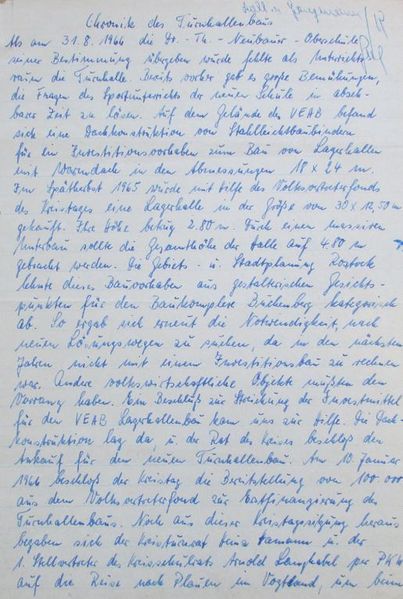 Chronik des Turnhallenbaus
Als am 31.8.1966 die Dr.-Th.-Neubauer-Oberschule
seiner Bestimmung übergeben wurde fehlte als Unterrichts
raum die Turnhalle. Bereits vorher gab es große Bemühungen,
die Fragen des Sportunterrichts der neuen Schule in abseh-
barer Zeit zu lösen. Auf dem Gelände des VEAB befand
sich eine Dachkonstruktion von Stahlleichtbaubindern
für ein Investitionsvorhaben zum Bau von Lagerhallen
mit Warmdach in den Abmessungen 18 x 24 m.
Im Spätherbst 1965 wurde mit Hilfe des Volksvertreterfonds
des Kreistages eine Lagerhalle in der Größe von 30 x 12,50 m
gekauft. Ihre Höhe betrug 2.80 m. Durch einen massiven
Unterbau sollte die Gesamthöhe der Halle auf 4.80 m
gebracht werden. Die Gebiets- u. Stadtplanung Rostock
lehnte dieses Bauvorhaben aus gestalterischen Gesichts-
punkten für den Baukomplex kategorisch
ab. So ergab sich erneut die Notwendigkeit, nach
neuen Lösungswegen zu suchen, da in den nächsten
Jahren nicht mit einem Investitionsbau zu rechnen
war. Andere volkswirtschaftliche Objekte mußten den
Vorrang haben. Ein Beschluß zur Streichung der Investmittel
für den VEAB Lagerhallenbau kam uns zur Hilfe. Die Dach-
konstruktion lag da, u. der Rat des Kreises beschloß den
Ankauf für den neuen Turnhallenbau. Am 10. Januar
1966 beschloß der Kreistag die Bereitstellung von 100 000
aus dem Volksvertreterfond zur Mitfinanzierung des
Turnhallenbaus. Noch aus dieser Kreistagssitzung heraus
begaben sich der Kreisturnrat u. der
1. Stellvertreter des Kreisschulrats Arnold per PKW
auf die Reise nach Plauen im Vogtland, um beim